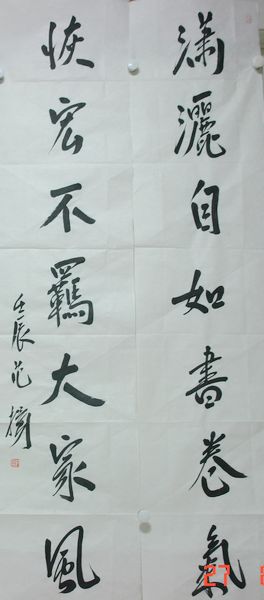 潇灑自如書卷氣
恢宏不羈大家風
壬辰范
27